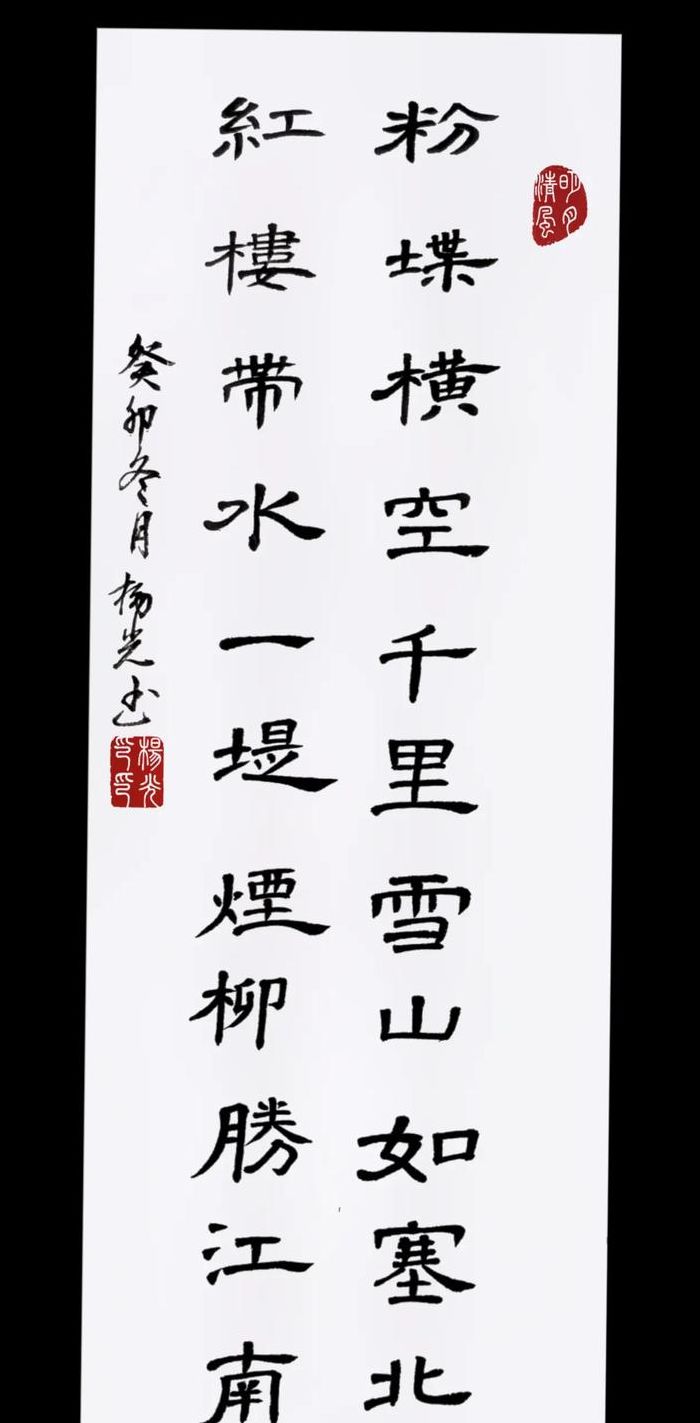 粉堞橫空千里雪山如塞北
紅樓帶水一堤煙柳勝江南
癸卯冬月楊光书
明月清風
楊光之印